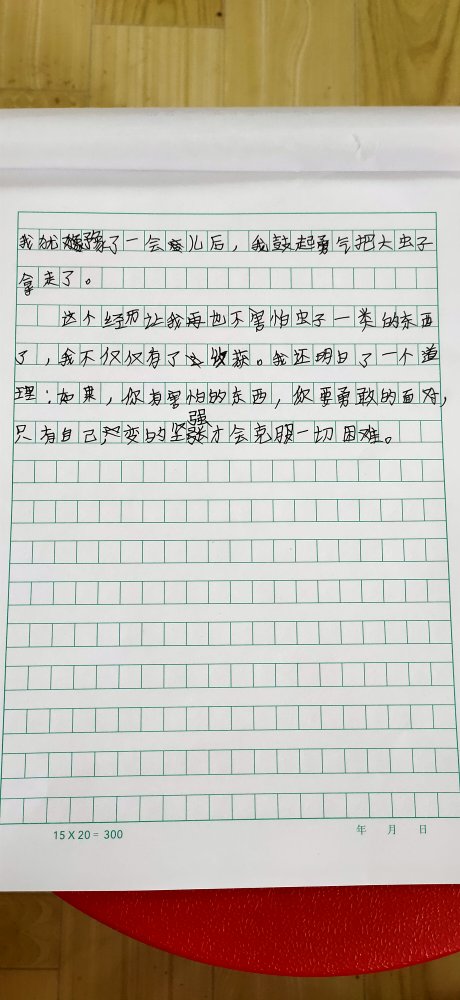 我犹豫了一会儿后，我鼓起勇气把大虫子
拿走了。
这个经历让我再也不害怕虫子一类的东西
了，我不仅仅有了收获。我还明白了一个道
理：如果，你有害怕的东西，你要勇敢的面对，
只有自己变的坚强才会克服一切困难。
15 X 20 = 300
年 月 日